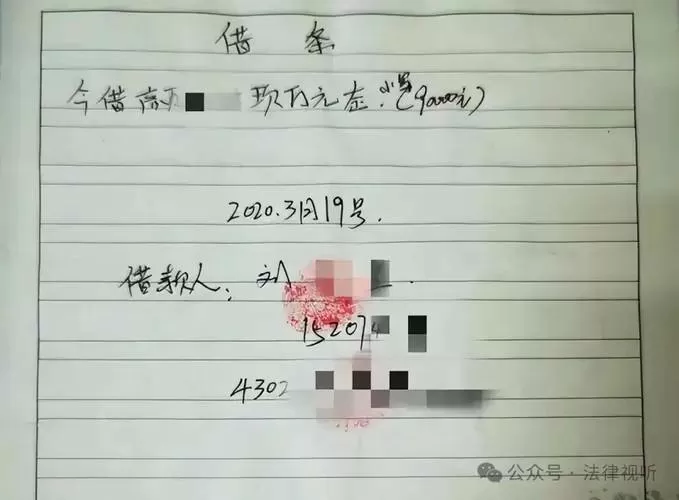 借 条
今借高 玖万元 小写(90000元)
2020.3月19号.
借款人: 刘
15207
4302
公众号·法律视听